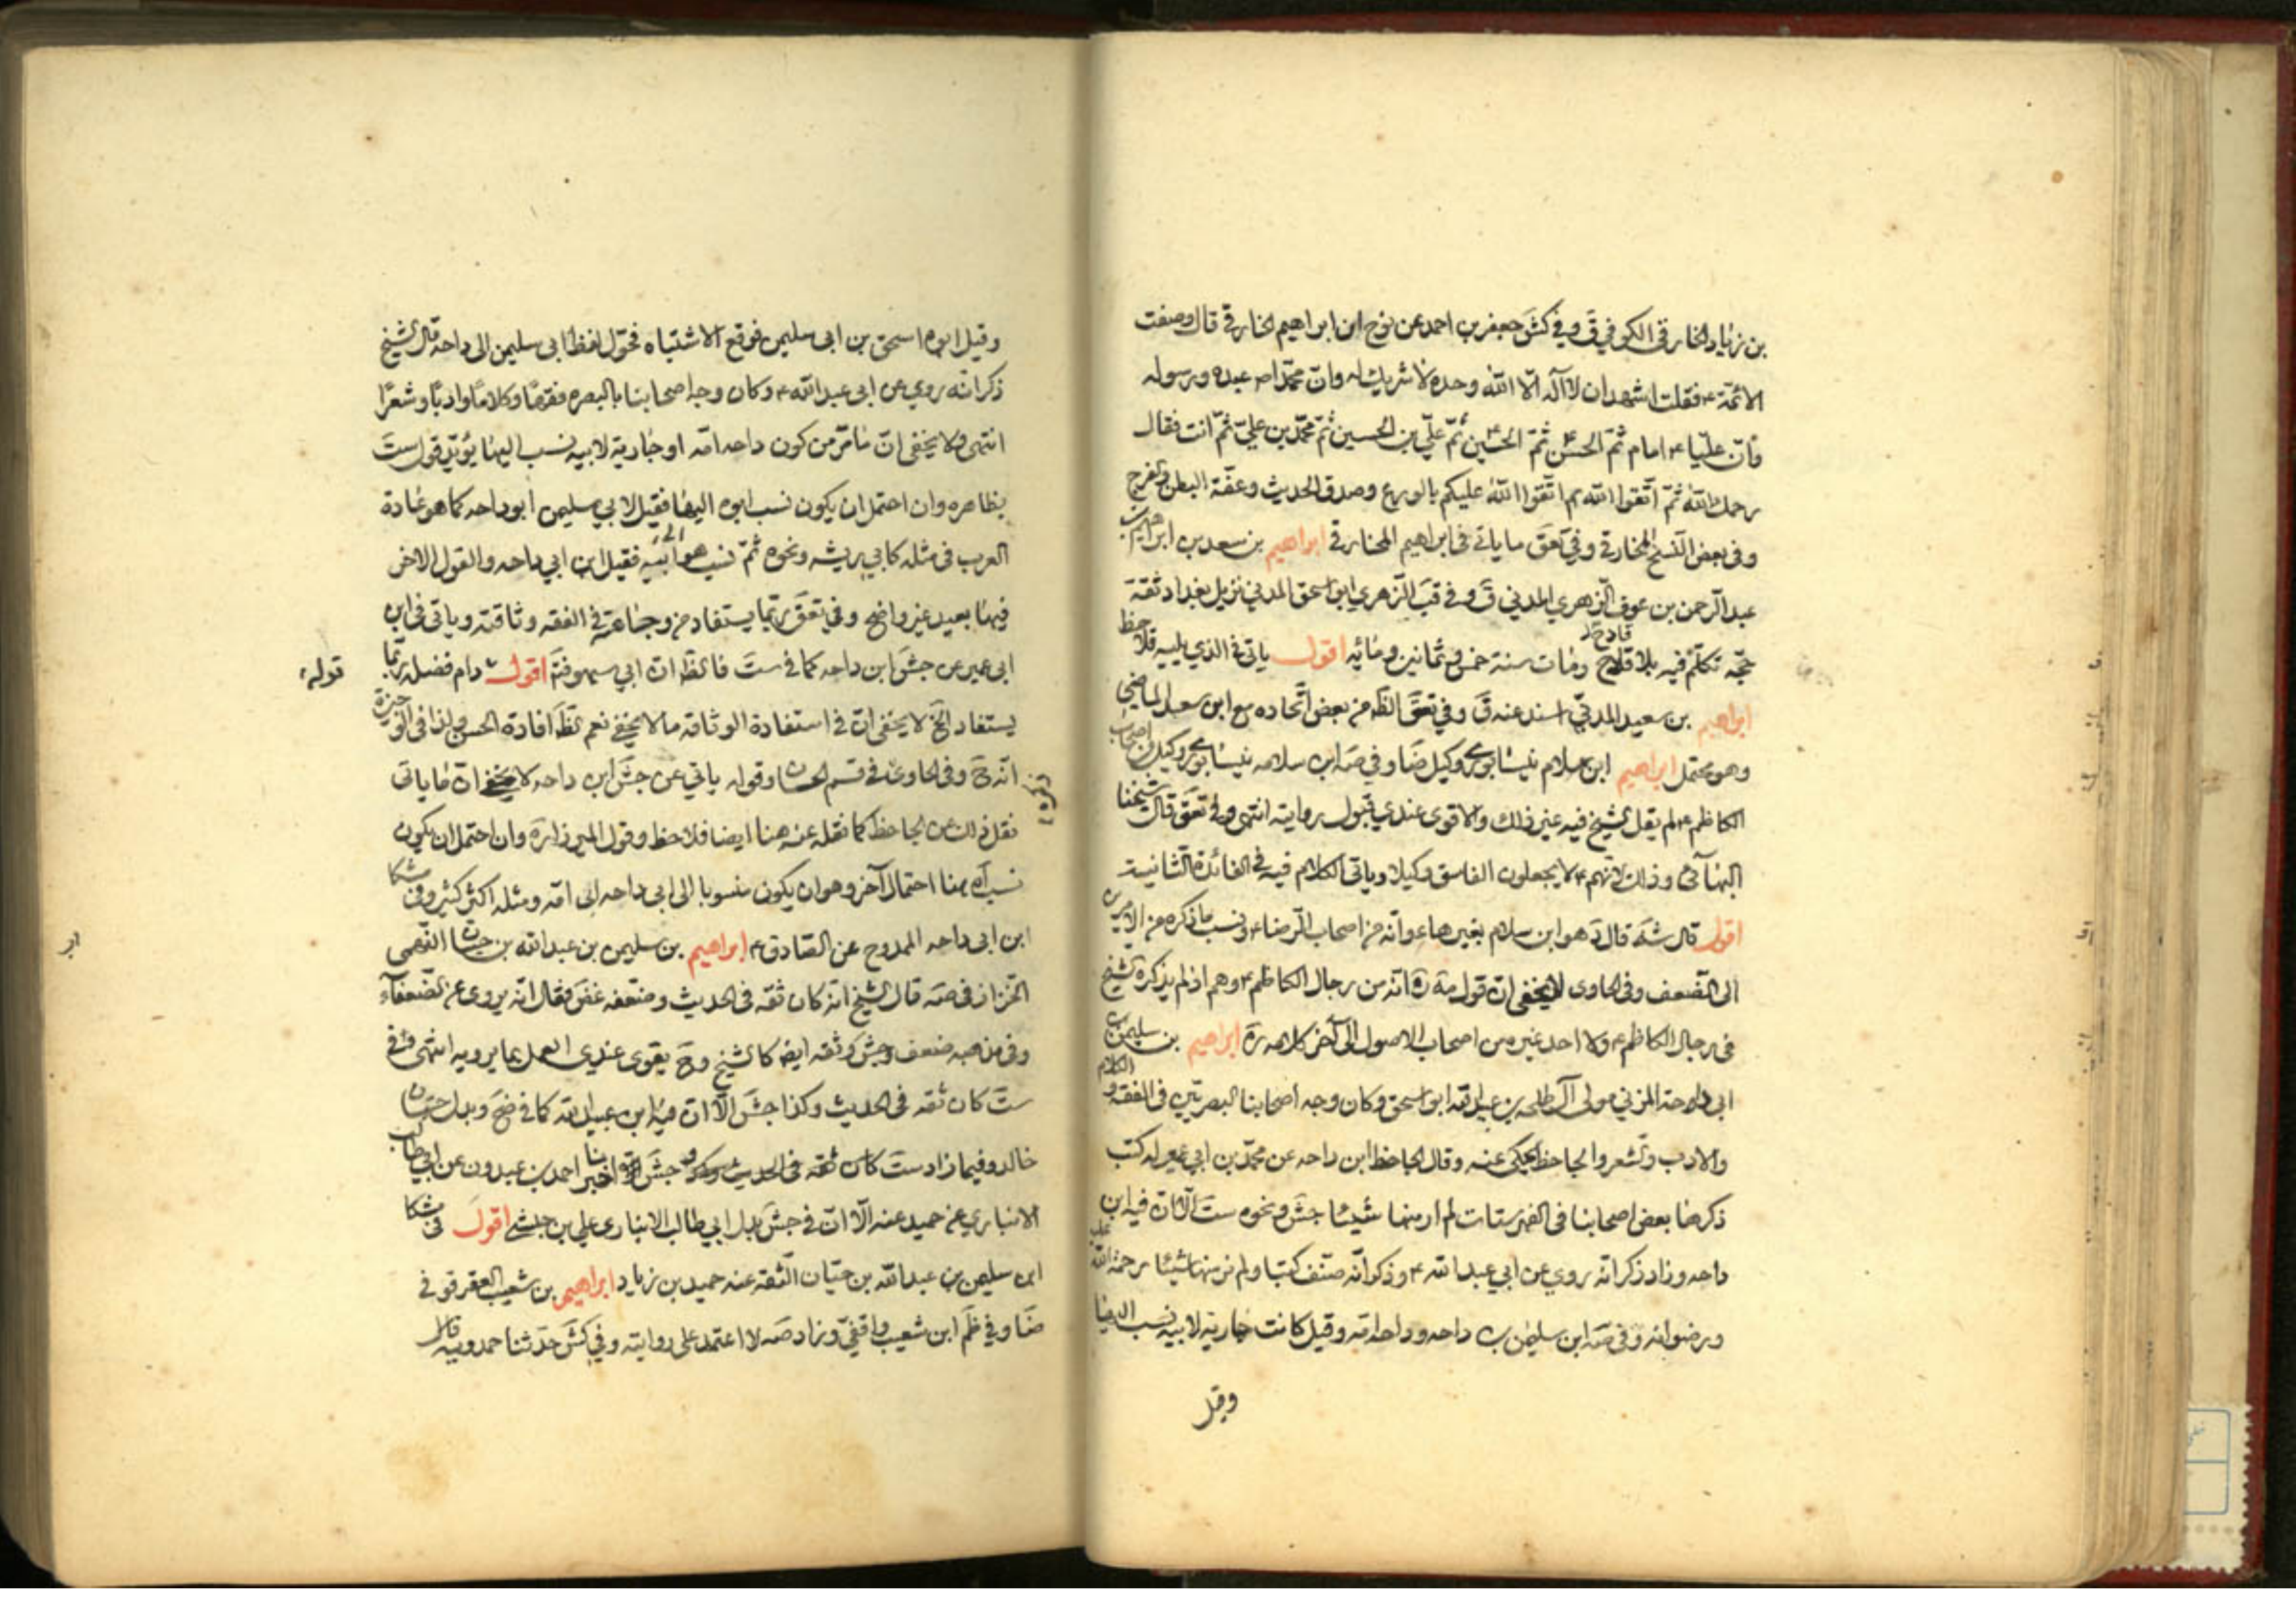 بن زياد الخارقى الكوفي ق وفي كش جعفر بن احمد عن نوح ابن ابراهيم الخارقي قال وصفت
الائمة ع فقلت اشهد ان لا اله الا الله وحده لا شريك له وان محمدا ص عبده ورسوله
وان عليا ع امام ثم الحسن ثم الحسين ثم علي بن الحسين ثم محمد بن علي ثم انت فقال
رحمك الله ثم اتقوا الله ثم اتقوا الله عليكم بالورع وصدق الحديث وعفة البطن والفرج
وفى بعض النسخ المخارقي وفي تعق ما ياتي فى ابراهيم المخارقي ابراهيم بن سعد بن ابراهيم بن
عبد الرحمن بن عوف الزهري المدني ق وفي قب الزهري ابو اسحق المدني نزيل بغداد ثقة
حجة تكلم فيه بلا قادح ومات سنة خمس وثمانين ومائه اقول ياتي في الذي يليه فلاحظ
ابراهيم بن سعيد المدني اسند عنه ق وفي تعق الظ من بعض اتحاده مع ابن سعد الماضي
وهو محتمل ابراهيم ابن سلام نيسابوري وكيل ضا وفي صه ابن سلامه نيسابوري وكيل من اصحاب
الكاظم ع لم يقل الشيخ فيه غير ذلك والاقوى عندي قبول روايته انتهى وفي تعق قال شيخنا
البهآئي وذلك لانهم ع لا يجعلون الفاسق وكيلا وياتي الكلام فيه في الفائدة الثانية
اقول قال شه قال د هو ابن سلام بغير هاء وانه من اصحاب الرضا ع ونسب ما ذكره من الامرين
الى الضعف وفى الحاوى لا يخفى ان قول مة ره انه من رجال الكاظم ع وهم اذ لم يذكره الشيخ
فى رجال الكاظم ع ولا احد غيره من اصحاب الاصول الى آخر كلامه ره ابراهيم بن سليمن بن
ابي داحة المزني مولى آل طلحه بن عبيد الله ابو اسحق وكان وجه أصحابنا البصريين فى الفقه والكلام
والادب والشعر والجاحظ يحكى عنه وقال الجاحظ ابن داحه عن محمد بن ابي عمير له كتب
ذكرها بعض اصحابنا فى الفهرستات لم ار منها شيئا جش ونحوه ست الا ان فيه ابن
داحه وزاد ذكر انه روي عن ابي عبد الله ع وذكر انه صنف كتبا ولم نر منها شيئا رحمة الله عليه
ورضوانه وفى صه ابن سليمن بن داحه وداحه امه وقيل كانت جارية لابيه نسب اليها
وقيل
وقيل ابوه اسحق بن ابى سليمن فوقع الاشتباه فحول لفظ ابى سليمن الى داحه قال الشيخ
ذكر انه روي عن ابى عبد الله ع وكان وجه اصحابنا بالبصره فقها وكلاما وادبا وشعرا
انتهى ولا يخفى ان ما مر من كون داحه امه او جارية لابيه نسب اليها يؤيد قول ست
بظاهره وان احتمل ان يكون نسب ابوه اليها فقيل لابي سليمن ابو داحه كما هو عادة
العرب فى مثله كابي ريشه ونحوه ثم نسب هو الى ابيه فقيل ابن ابي داحه والقول الاخر
فيها بعيد غير واضح وفي تعق ربما يستفاد من وجاهته في الفقه وثاقته وياتى فى ابن
ابى عمير عن جش ابن داحه كما في ست فالظ ان ابي سهو فتم اقول قوله دام فضله ربما
يستفاد الخ لا يخفى ان في استفادة الوثاقه ما لا يخفى نعم الظ افادة الحسن ولذا فى الوجيزة
انه ح وفى الحاوى فى قسم الحسان وقوله ياتي عن جش ابن داحه لا يخفى ان ما ياتى
نقل ذلك عن الجاحظ كما نقله عنه هنا ايضا فلاحظ وقول الميرزا ره وان احتمل ان يكون
نسب اه هنا احتمال آخر وهو ان يكون منسوبا الى ابى داحه لى امه ومثله اكثر كثير وفى مشكا
ابن ابى داحه الممدوح عن الصادق ع ابراهيم بن سليمن بن عبد الله بن حيان النهمى
الخزاز فى صه قال الشيخ انه كان ثقه فى الحديث وضعفه غض فقال انه يروى عن الضعفآء
وفى مذهبه ضعف وجش وثقه ايضا كالشيخ وح يقوى عندى العمل بما يرويه انتهى وفى
ست كان ثقه فى الحديث وكذا جش الا ان فيه ابن عبيد الله كما في ضح وبدل حيان
خالد وفيما زاد ست كان ثقه فى الحديث جش اخبرنا احمد بن عبدون عن ابي طالب
الانباري عن حميد عنه الا ان في جش بدل ابي طالب الانبارى علي بن حبشي اقول فى مشكا
ابن سليمن بن عبد الله بن حيان الثقه عنه حميد بن زياد ابراهيم بن شعيب العقرقوفي
ضا وفي ظم ابن شعيب واقفي وزاد صه لا اعتمد على روايته وفي كش حدثنا حمدويه قال